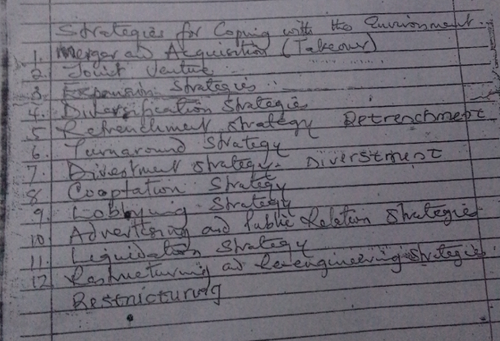 Strategies for Coping with the Environment
1. Merger and Acquisition (Takeover)
2. Joint Venture
3 Expansion Strategies
4. Diversification Strategies
5 Retrenchment Strategy RETRENCHMENT
6. Turnaround Strategy
7. Divestment Strategy. DIVERSTMENT
8 Cooptation Strategy
9. Lobbying Strategy
10 Advertising and Public Relation Strategies
11. Liquidation Strategy
12. Restructuring and Re-engineering Strategies.
RESTRICTURING